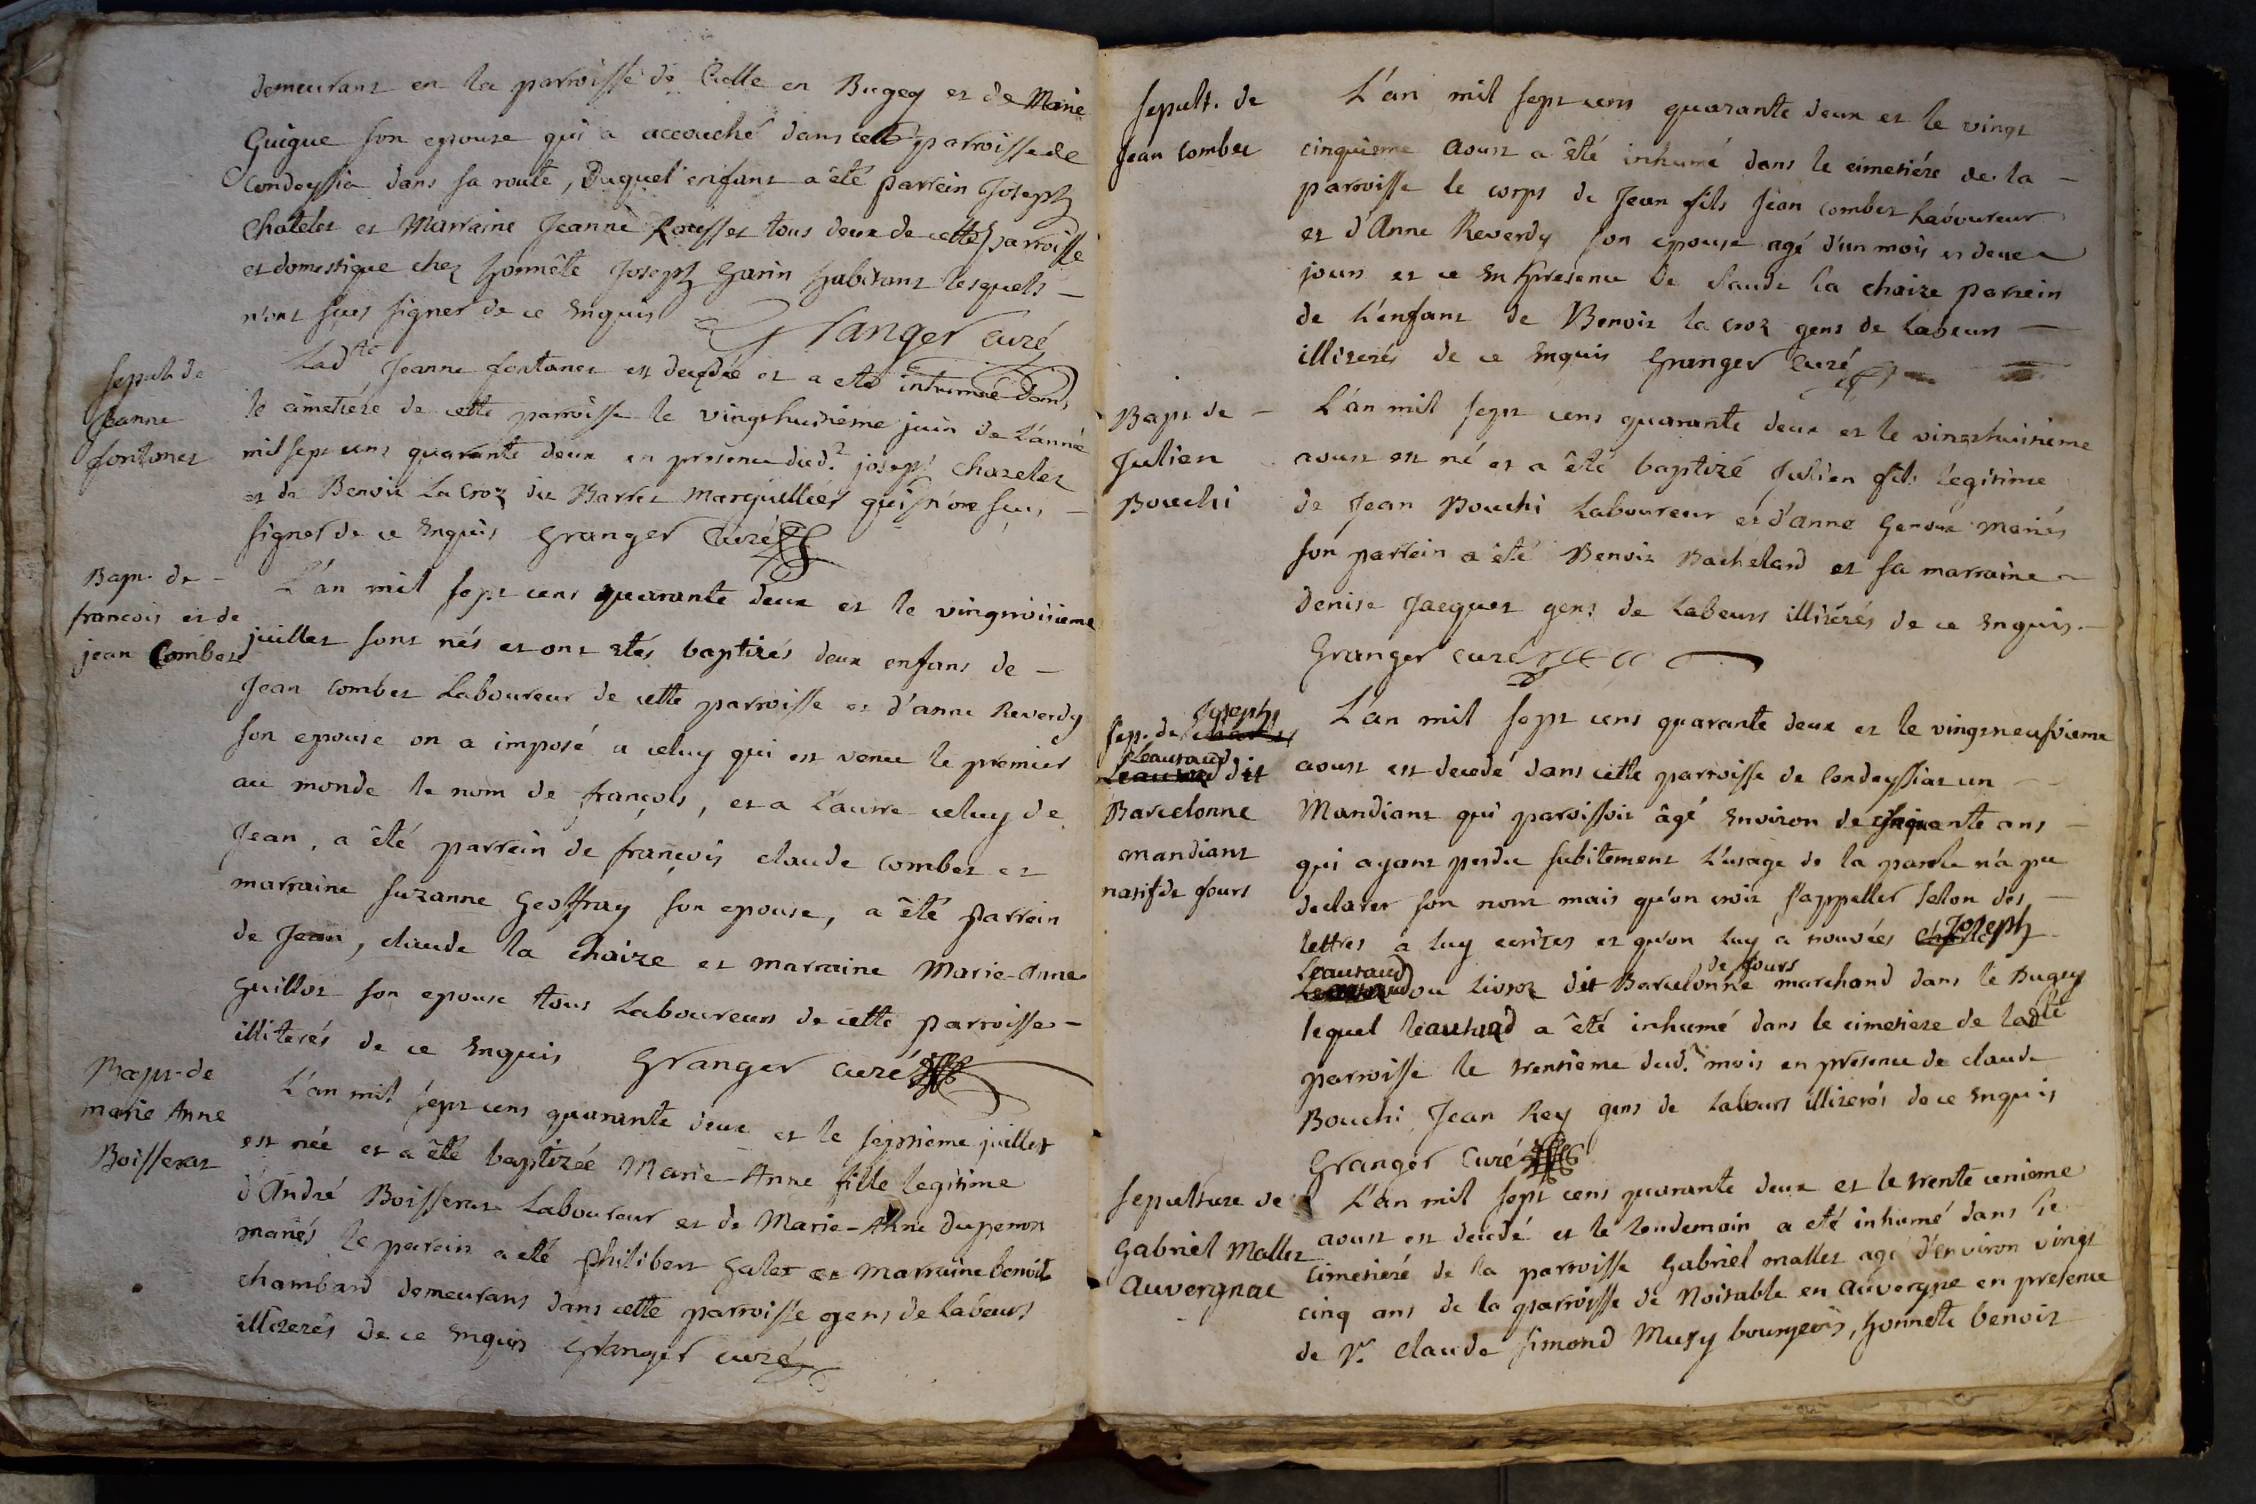 demeurant en la parroisse de en Bugey et de Marie
Guigue son epouse qui a accouché dans cette parroisse de
Condeyssia dans sa route, Duquel enfant a êté parrein Joseph
Chatelet et Marraine Jeanne Rousset tous deux de cette parroisse
et domestique chez honnête Joseph Garin habitant lesquels
n'ont sçus signer de ce Enquis Granger Curé
Sepult. de
Jeanne
fontanet
Lad.te Jeanne fontanet est decedée et a eté inhumée dans
le cimetiére de cette parroisse le vingthuitiéme juin de l'année
mil sept cens quarante deux en presence dud.t joseph Chatelet
et de Benoit La Croz dit Barret Marguillier qui n'ont sçus
signer de ce Enquis Granger Curé
Bapt. de
francois et de
jean Combet
L'an mil sept cens quarante deux et le vingtroisieme
juillet sont nés et ont etés baptizés deux enfans de
Jean Combet Laboureur de cette parroisse et d'anne Reverdy
son epouse on a imposé a celuy qui est venu le premier
au monde le nom de françois, et a l'autre celuy de
Jean, a êté parrein de françois claude Combet et
marraine Suzanne Geoffray son epouse, a êté parrein
de Jean, claude la Chaize et marraine Marie-Anne
Guillot son epouse tous Laboureurs de cette parroisse
illiterés de ce Enquis Granger Curé
Bapt. de
marie Anne
Boisserat
L'an mil sept cens quarante deux et le septieme juillet
est née et a êté baptizée Marie-Anne fille legitime
d'André Boisserat Laboureur et de Marie-Anne Duperron
mariés le parein a eté philibert Galet et Marraine benoite
Chambard demeurans dans cette parroisse gens de labeurs
illiterés de ce Enquis Granger curé
Sepult. de
Jean Combet
L'an mil sept cens quarante deux et le vingt
cinquieme Aoust a êté inhumé dans le cimetiére de la
parroisse le corps de Jean fils Jean Combet Laboureur
et d'Anne Reverdy son epouse agé d'un mois et deux
jours et ce En presence de Claude la chaize parrein
de l'enfant de Benoit la croz gens de Labeurs
illiterés de ce Enquis Granger Curé
Bapt de
Julien
Bouchi
L'an mil sept cens quarante deux et le vingthuitieme
aoust est né et a êté baptizé Julien fils legitime
de Jean Bouchi Laboureur et d'anne Genoux Mariés
son parrein a êté Benoit Bachelard et sa marraine
Denise Jacquet gens de Labeurs illitérés de ce Enquis.
Granger curé
Sep. de Joseph
Leautaud dit
Barcelonne
mandiant
natif de fours
L'an mil sept cens quarante deux et le vingtneufvieme
aoust est decedé dans cette parroisse de Condeyssiat un
Mandiant qui paroissoit âgé Environ de cinquante ans
qui ayant perdu subitement l'usage de la parole n'a pu
declarer son nom mais qu'on croit s'appeller selon des
lettres à luy ecrites et qu'on luy a trouvées Joseph
Leautaud ou dit Barcelonne de fours marchand dans le Bugey
lequel leautaud a êté inhumé dans le cimetiere de lad.te
parroisse le trentième dud.t mois en presence de claude
Bouchi, Jean Rey gens de Labours illiterés de ce Enquis
Granger Curé
Sepulture de
Gabriel Mallet
Auvergnac
L'an mil sept cens quarante deux et le trente unieme
aoust est decedé et le lendemain a eté inhumé dans le
Cimetiéré de la parroisse Gabriel mallet agé d'environ vingt
cinq ans de la parroisse de Noirable en Auvergne en presence
de Sr. Claude Simond Musy bourgeois, honnete benoit